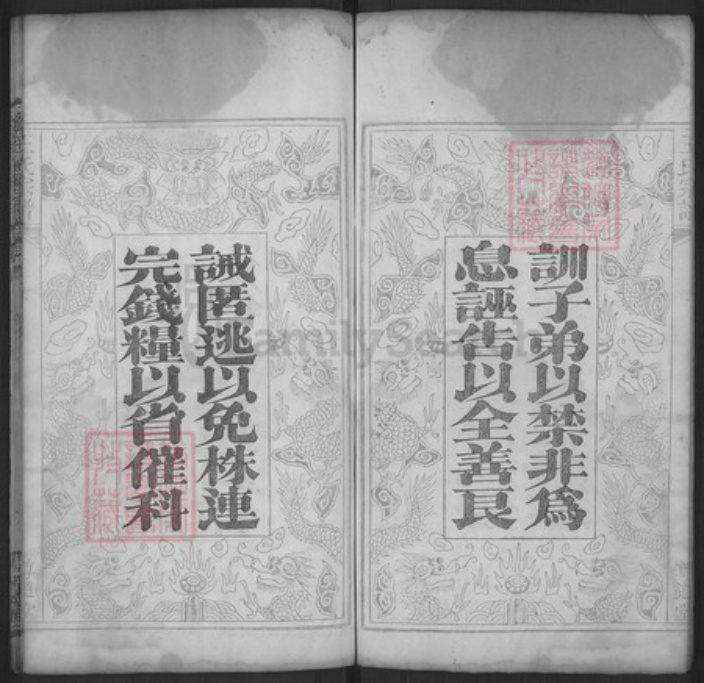 訓子弟以禁非爲
息誣告以全善良
誡匿逃以免株連
完錢糧以省催科
FamilySearch